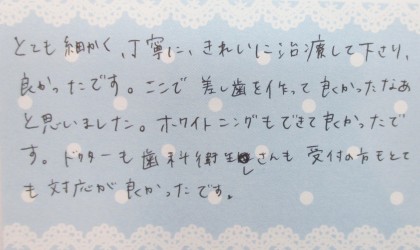 とても細かく、丁寧に、きれいに治療して下さり、
良かったです。ここで差し歯を作って良かったなあ
と思いました。ホワイトニングもできて良かったで
す。ドクターも歯科衛生しさんも受付の方もとて
も対応が良かったです。